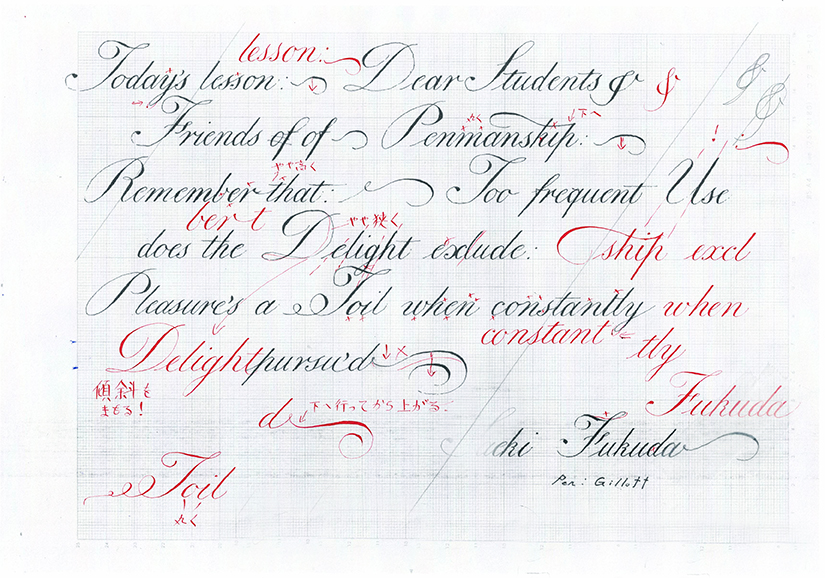 lesson:
Today's lesson: Dear Students & &
&
&
丸く 下へ
Friends of of Penmanship: !
やや高く
Remember that: Too frequent Use
ber t やや狭く
does the Delight exclude: ship excl
Pleasure's a Toil when constantly when
constant tly
Delight pursu'd ×
傾斜を
まもる!
Fukuda
d 下へ行ってから上がる.
cki Fukuda
Pen: Gillott
Toil
丸く